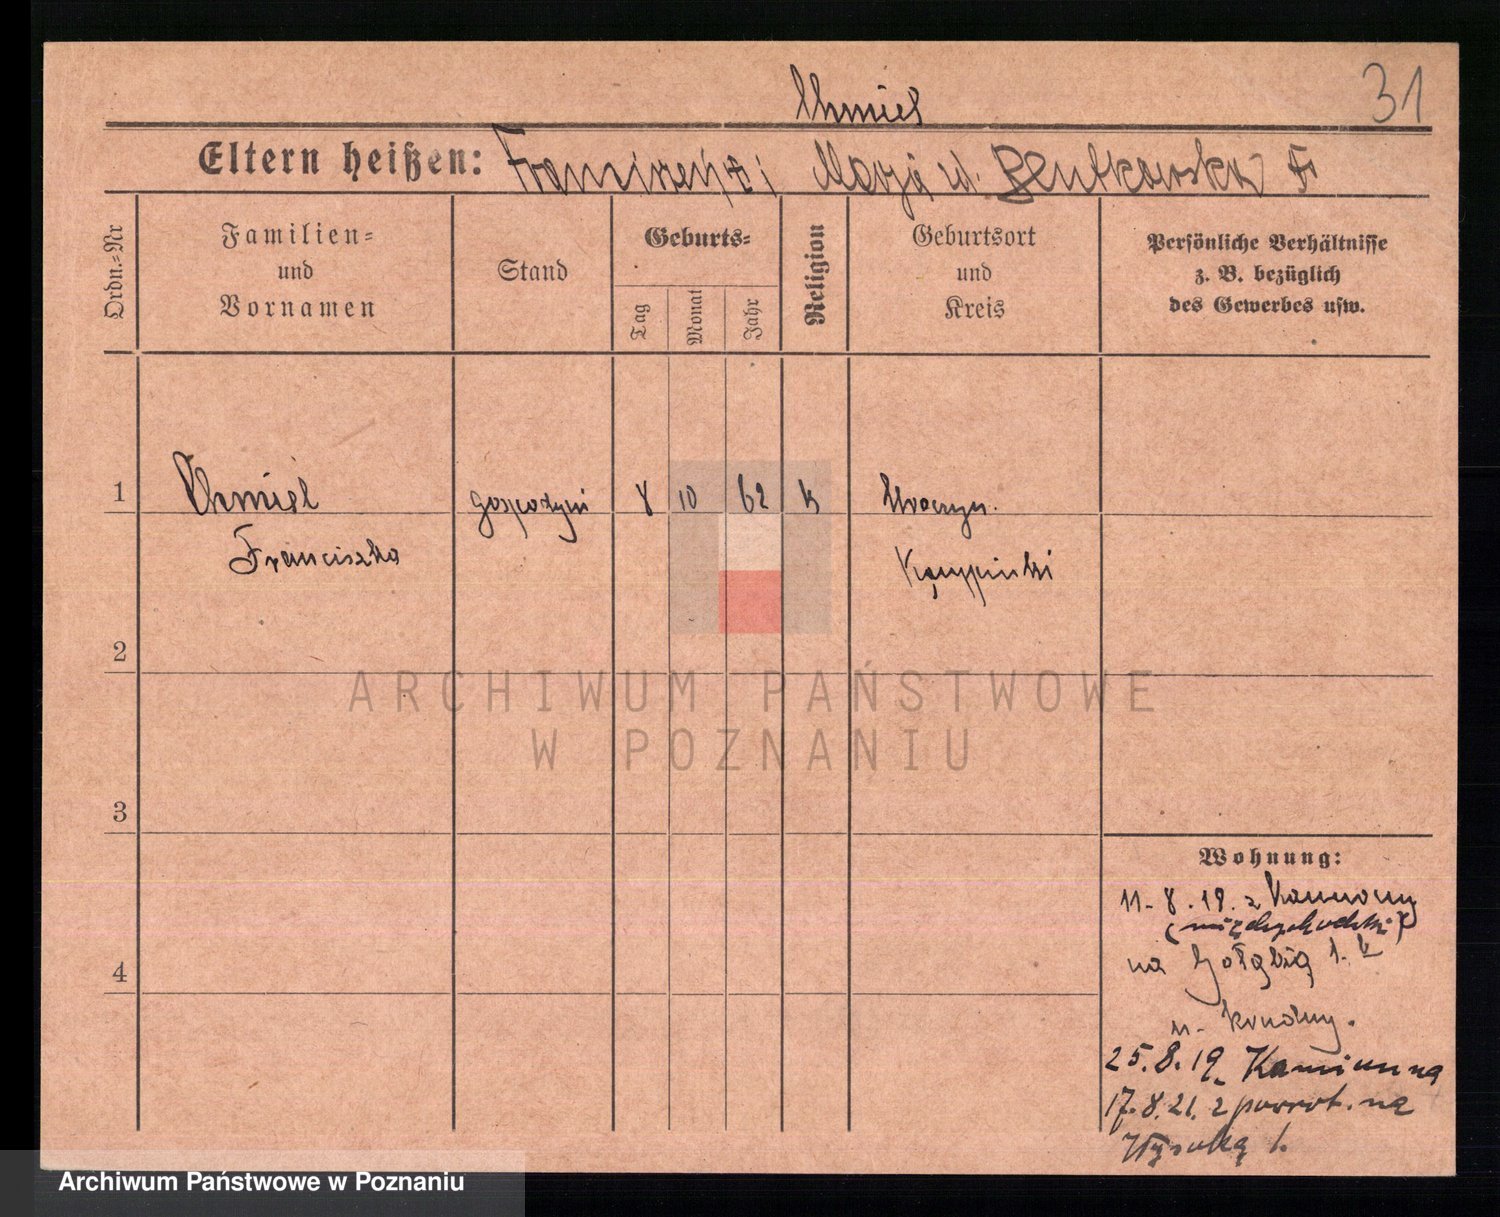 Chmiel
31
Eltern heißen: Franciszek i Marja
Ordn.-Nr
Familien-
und
Vornamen
Stand
Geburts-
Tag
Monat
Jahr
Religion
Geburtsort
und
Kreis
Persönliche Verhältnisse
z. B. bezüglich
des Gewerbes usw.
1
Chmiel
gospodyni
8
10
62
k
Franciszka
2
3
4
Wohnung:
11-8.19. z
(międzychodzki)
na Gołębią 1.
25.8.19. Kamionna
17.8.21. z powrot. na
Wysoką 1.
ARCHIWUM PAŃSTWOWE
W POZNANIU
Archiwum Państwowe w Poznaniu